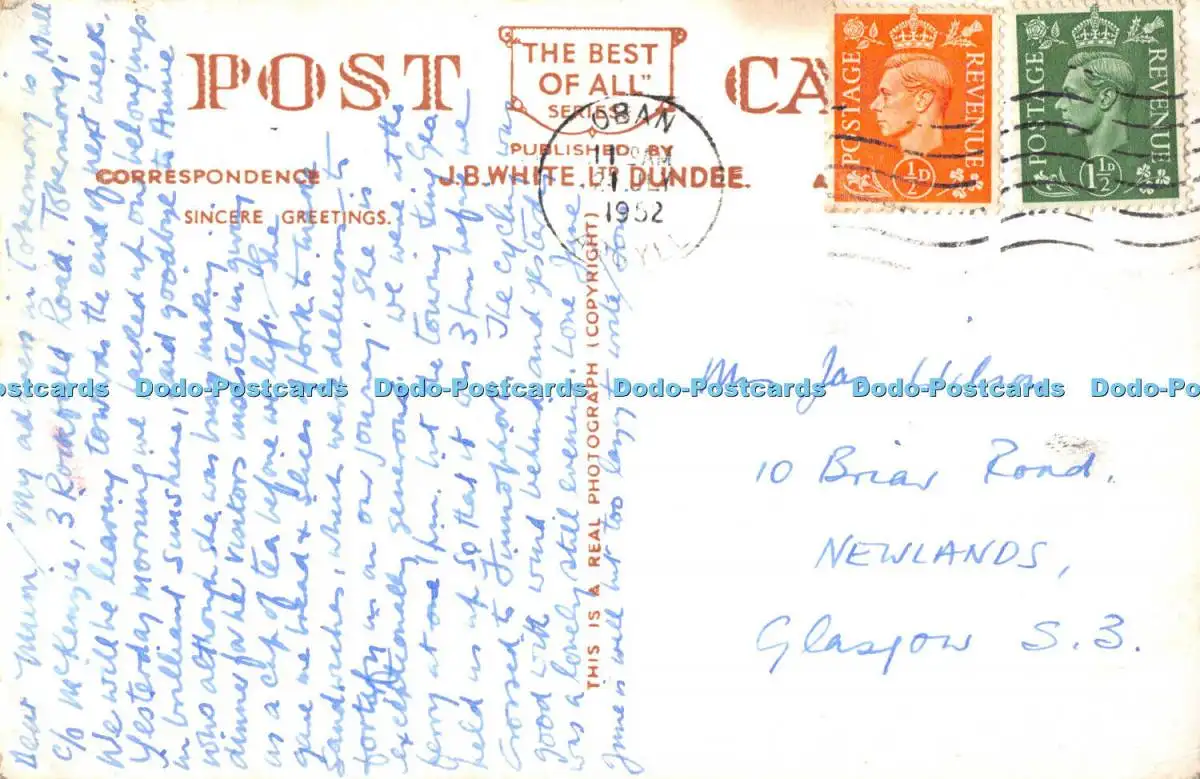 POST CA
"THE BEST
OF ALL"
SERIES
PUBLISHED BY
J.B.WHITE. LTD DUNDEE.
CORRESPONDENCE
SINCERE GREETINGS.
THIS IS A REAL PHOTOGRAPH (COPYRIGHT)
OBAN
11
1952
ARGYLL
POSTAGE REVENUE
½D
POSTAGE REVENUE
1½D
Dear Mum / My address in Tobermory is
c/o McKenzie, 3 Rockfield Road. Tobermory. Mull
We will be leaving towards the end of next week.
Yesterday morning we packed up our belongings
in brilliant sunshine, said goodbye to Annie
who although she was busy making
dinner for her visitors insisted in giving
us a cup of tea before we left. She
gave me bread & slices pork to make
Sandwiches, which were delicious to
fortify us on our journey. She is
exceptionally generous. We were at the
ferry at one pm. but the touring
held us up so that it was 3 pm before we
crossed to . The cycle was
good with wind behind and yesterday
was a lovely still evening. Love Jane
June is well but too lazy to write
Mrs Jas
10 Briar Road.
NEWLANDS,
Glasgow S. 3.
Dodo-Postcards Dodo-Postcards Dodo-Postcards Dodo-Postcards Dodo-Postcards